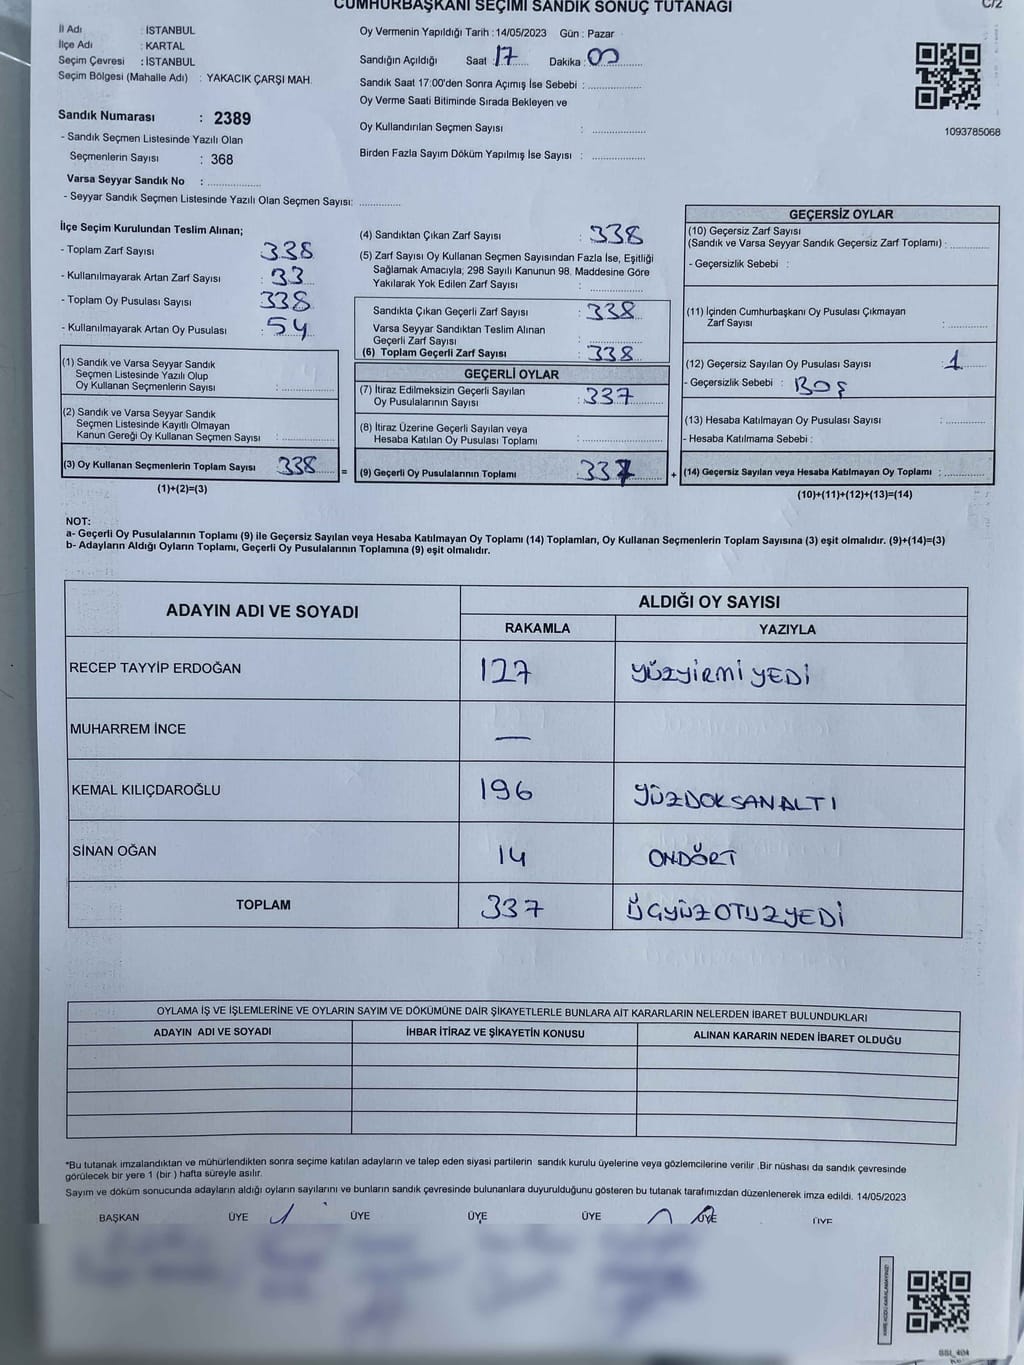 CUMHURBAŞKANI SEÇİMİ SANDIK SONUÇ TUTANAĞI
C/2
İl Adı : İSTANBUL
İlçe Adı : KARTAL
Seçim Çevresi : İSTANBUL
Seçim Bölgesi (Mahalle Adı) : YAKACIK ÇARŞI MAH.
Sandık Numarası : 2389
- Sandık Seçmen Listesinde Yazılı Olan
Seçmenlerin Sayısı : 368
Varsa Seyyar Sandık No :
- Seyyar Sandık Seçmen Listesinde Yazılı Olan Seçmen Sayısı:
Oy Vermenin Yapıldığı Tarih : 14/05/2023 Gün : Pazar
Sandığın Açıldığı Saat : 17 Dakika : 00
Sandık Saat 17:00'den Sonra Açımış İse Sebebi :
Oy Verme Saati Bitiminde Sırada Bekleyen ve
Oy Kullandırılan Seçmen Sayısı :
Birden Fazla Sayım Döküm Yapılmış İse Sayısı :
1093785068
İlçe Seçim Kurulundan Teslim Alınan;
- Toplam Zarf Sayısı : 338
- Kullanılmayarak Artan Zarf Sayısı : 33
- Toplam Oy Pusulası Sayısı : 338
- Kullanılmayarak Artan Oy Pusulası : 54
(1) Sandık ve Varsa Seyyar Sandık
Seçmen Listesinde Yazılı Olup
Oy Kullanan Seçmenlerin Sayısı :
(2) Sandık ve Varsa Seyyar Sandık
Seçmen Listesinde Kayıtlı Olmayan
Kanun Gereği Oy Kullanan Seçmen Sayısı :
(3) Oy Kullanan Seçmenlerin Toplam Sayısı 338 =
(1)+(2)=(3)
(4) Sandıktan Çıkan Zarf Sayısı : 338
(5) Zarf Sayısı Oy Kullanan Seçmen Sayısından Fazla İse, Eşitliği
Sağlamak Amacıyla; 298 Sayılı Kanunun 98. Maddesine Göre
Yakılarak Yok Edilen Zarf Sayısı :
Sandıkta Çıkan Geçerli Zarf Sayısı : 338
Varsa Seyyar Sandıktan Teslim Alınan
Geçerli Zarf Sayısı :
(6) Toplam Geçerli Zarf Sayısı : 338
GEÇERLİ OYLAR
(7) İtiraz Edilmeksizin Geçerli Sayılan
Oy Pusulalarının Sayısı : 337
(8) İtiraz Üzerine Geçerli Sayılan veya
Hesaba Katılan Oy Pusulası Toplamı :
(9) Geçerli Oy Pusulalarının Toplamı 337 +
GEÇERSİZ OYLAR
(10) Geçersiz Zarf Sayısı
(Sandık ve Varsa Seyyar Sandık Geçersiz Zarf Toplamı) :
- Geçersizlik Sebebi :
(11) İçinden Cumhurbaşkanı Oy Pusulası Çıkmayan
Zarf Sayısı :
(12) Geçersiz Sayılan Oy Pusulası Sayısı : 1
- Geçersizlik Sebebi : BOŞ
(13) Hesaba Katılmayan Oy Pusulası Sayısı :
- Hesaba Katılmama Sebebi :
(14) Geçersiz Sayılan veya Hesaba Katılmayan Oy Toplamı :
(10)+(11)+(12)+(13)=(14)
NOT:
a- Geçerli Oy Pusulalarının Toplamı (9) ile Geçersiz Sayılan veya Hesaba Katılmayan Oy Toplamı (14) Toplamları, Oy Kullanan Seçmenlerin Toplam Sayısına (3) eşit olmalıdır. (9)+(14)=(3)
b- Adayların Aldığı Oyların Toplamı, Geçerli Oy Pusulalarının Toplamına (9) eşit olmalıdır.
ADAYIN ADI VE SOYADI
ALDIĞI OY SAYISI
RAKAMLA YAZIYLA
RECEP TAYYİP ERDOĞAN 127 YÜZYİRMİYEDİ
MUHARREM İNCE —
KEMAL KILIÇDAROĞLU 196 YÜZDOKSANALTI
SİNAN OĞAN 14 ONDÖRT
TOPLAM 337 ÜÇYÜZOTUZYEDİ
OYLAMA İŞ VE İŞLEMLERİNE VE OYLARIN SAYIM VE DÖKÜMÜNE DAİR ŞİKAYETLERLE BUNLARA AİT KARARLARIN NELERDEN İBARET BULUNDUKLARI
ADAYIN ADI VE SOYADI İHBAR İTİRAZ VE ŞİKAYETİN KONUSU ALINAN KARARIN NEDEN İBARET OLDUĞU
*Bu tutanak imzalandıktan ve mühürlendikten sonra seçime katılan adayların ve talep eden siyasi partilerin sandık kurulu üyelerine veya gözlemcilerine verilir .Bir nüshası da sandık çevresinde
görülecek bir yere 1 (bir ) hafta süreyle asılır.
Sayım ve döküm sonucunda adayların aldığı oyların sayılarını ve bunların sandık çevresinde bulunanlara duyurulduğunu gösteren bu tutanak tarafımızdan düzenlenerek imza edildi. 14/05/2023
BAŞKAN ÜYE ÜYE ÜYE ÜYE ÜYE ÜYE